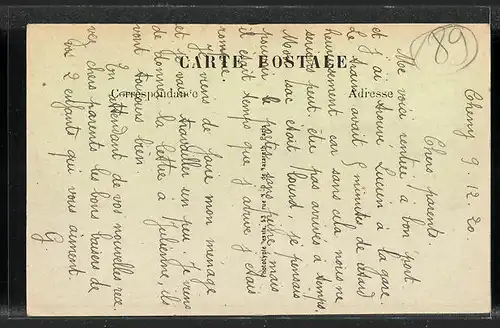 CARTE POSTALE
Correspondance
Adresse
(89)
Cheny 9.12.20.
Chers parents
Me voici rentrée à bon port
et j'ai trouvé Lucien à la gare.
Le train avait 5 minutes de retard
heureusement car sans cela nous ne
serions peut être pas arrivés à temps.
Mon sac était lourd, je pouvais
pourtant le porter sans peine, mais
il était temps que j'arrive j'étais
rompue.
Je viens de faire mon ménage
et je vais travailler un peu. Je viens
de donner la lettre à Julienne, ils
vont toujours bien.
En attendant de vos nouvelles rece
vez chers parents les bons baisers de
vos 2 enfants qui vous aiment.
G.